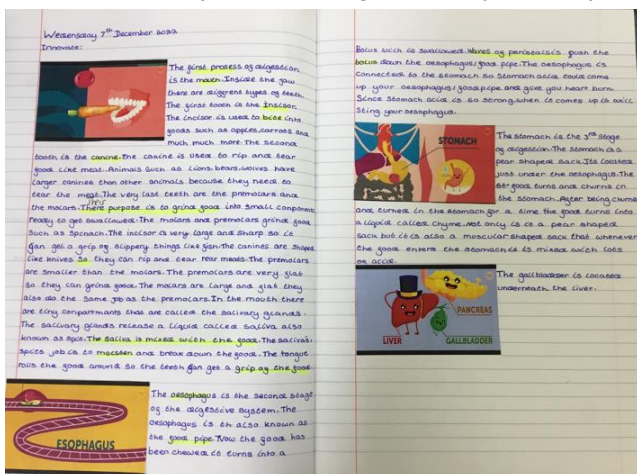 Wednesday 7th December 2022
Innovate:
The first prosess of digestion
is the mouth. Inside the jaw
there are different types of teeth.
The first tooth is the Insisor.
The incisor is used to bite into
foods such as apples, carrots and
much much more. The second
tooth is the canine. The canine is used to rip and tear
food like meat. Animals such as lions, bears, wolves have
larger canines than other animals because they need to
tear the meat. The very last teeth are the premolars and
their
the molars. There purpose is to grind food into small components
ready to get swallowed. The molars and premolars grind food
such as spinach. The incisor is very large and sharp so it
can get a grip of slippery things like fish. The canines are shaped
like knives so they can rip and tear rear meats. The premolars
are smaller than the molars. The premolars are very flat
so they can grind food. The molars are large and flat they
also do the same job as the premolars. In the mouth there
are tiny compartments that are called the salivary glands.
The salivary glands release a liquid called saliva also
known as spit. The saliva is mixed with the food. The salivas
spits job is to moisten and break down the food. The tongue
rolls the food around so the teeth can get a grip of the food.
The oesophagus is the second stage
of the digestive system. The
oesophagus is also known as
the food pipe. Now the food has
been chewed it turns into a
ESOPHAGUS
Bolus wich is swallowed. Waves of peristalsis push the
bolus down the oesophagus/food pipe. The oesophagus is
connected to the stomach so stomach acid could come
up your oesophagus/food pipe and give you heart burn.
Since stomach acid is so strong, when it comes up it will
sting your oesophagus.
STOMACH
The stomach is the 3rd stage
of digestion. The stomach is a
pear shaped sack. Its located
just under the oesophagus. The
food turns and churns in
the stomach. After being churned
and turned in the stomach for a time the food turns into
a liquid called chyme. Not only is it a pear shaped
sack but it is also a muscular shaped sack that whenever
the food enters the stomach is mixed with lots
of acid.
The gallbladder is located
underneath the liver.
PANCREAS
LIVER
GALLBLADDER